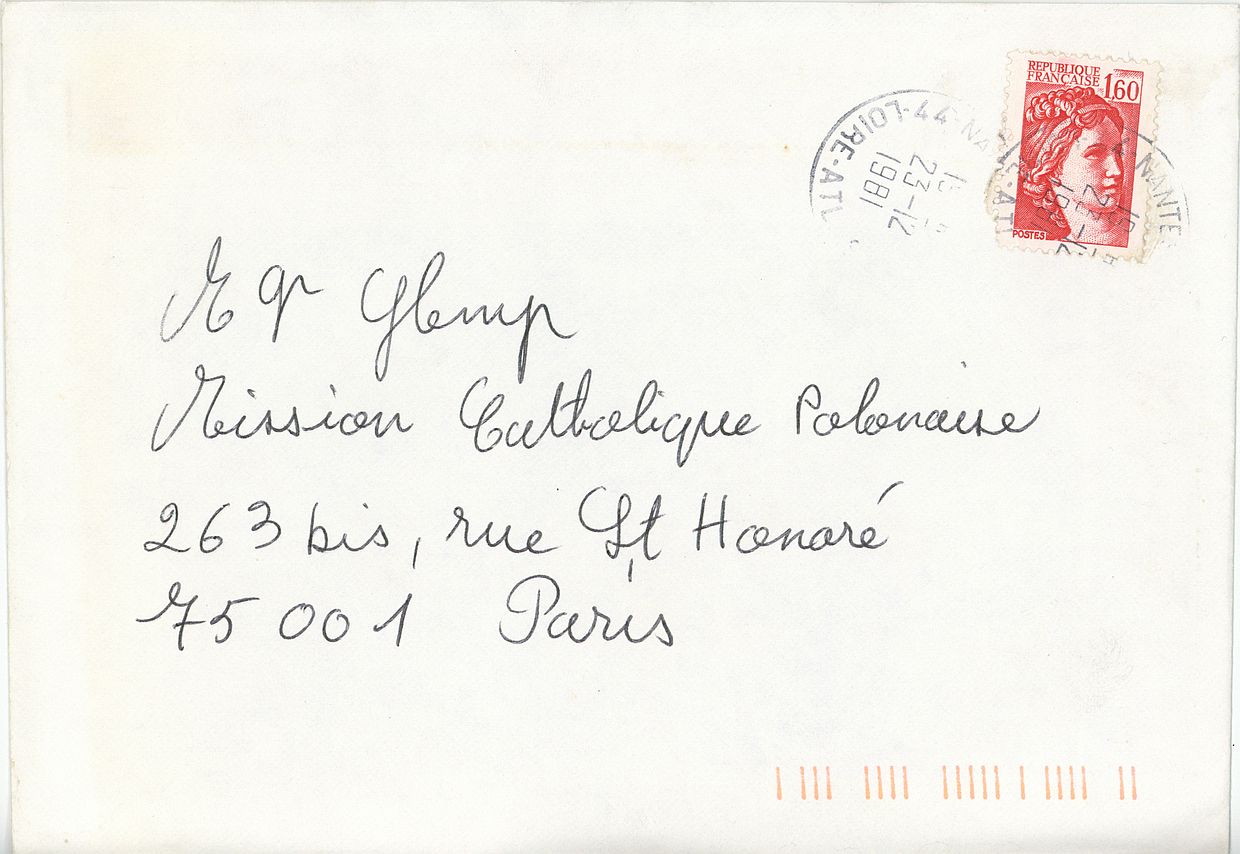 REPUBLIQUE
FRANÇAISE 1,60
POSTES
44-NANTES
LOIRE-ATL
23-12
1981
Mgr Glemp
Mission Catholique Polonaise
263 bis, rue St Honoré
75 001 Paris